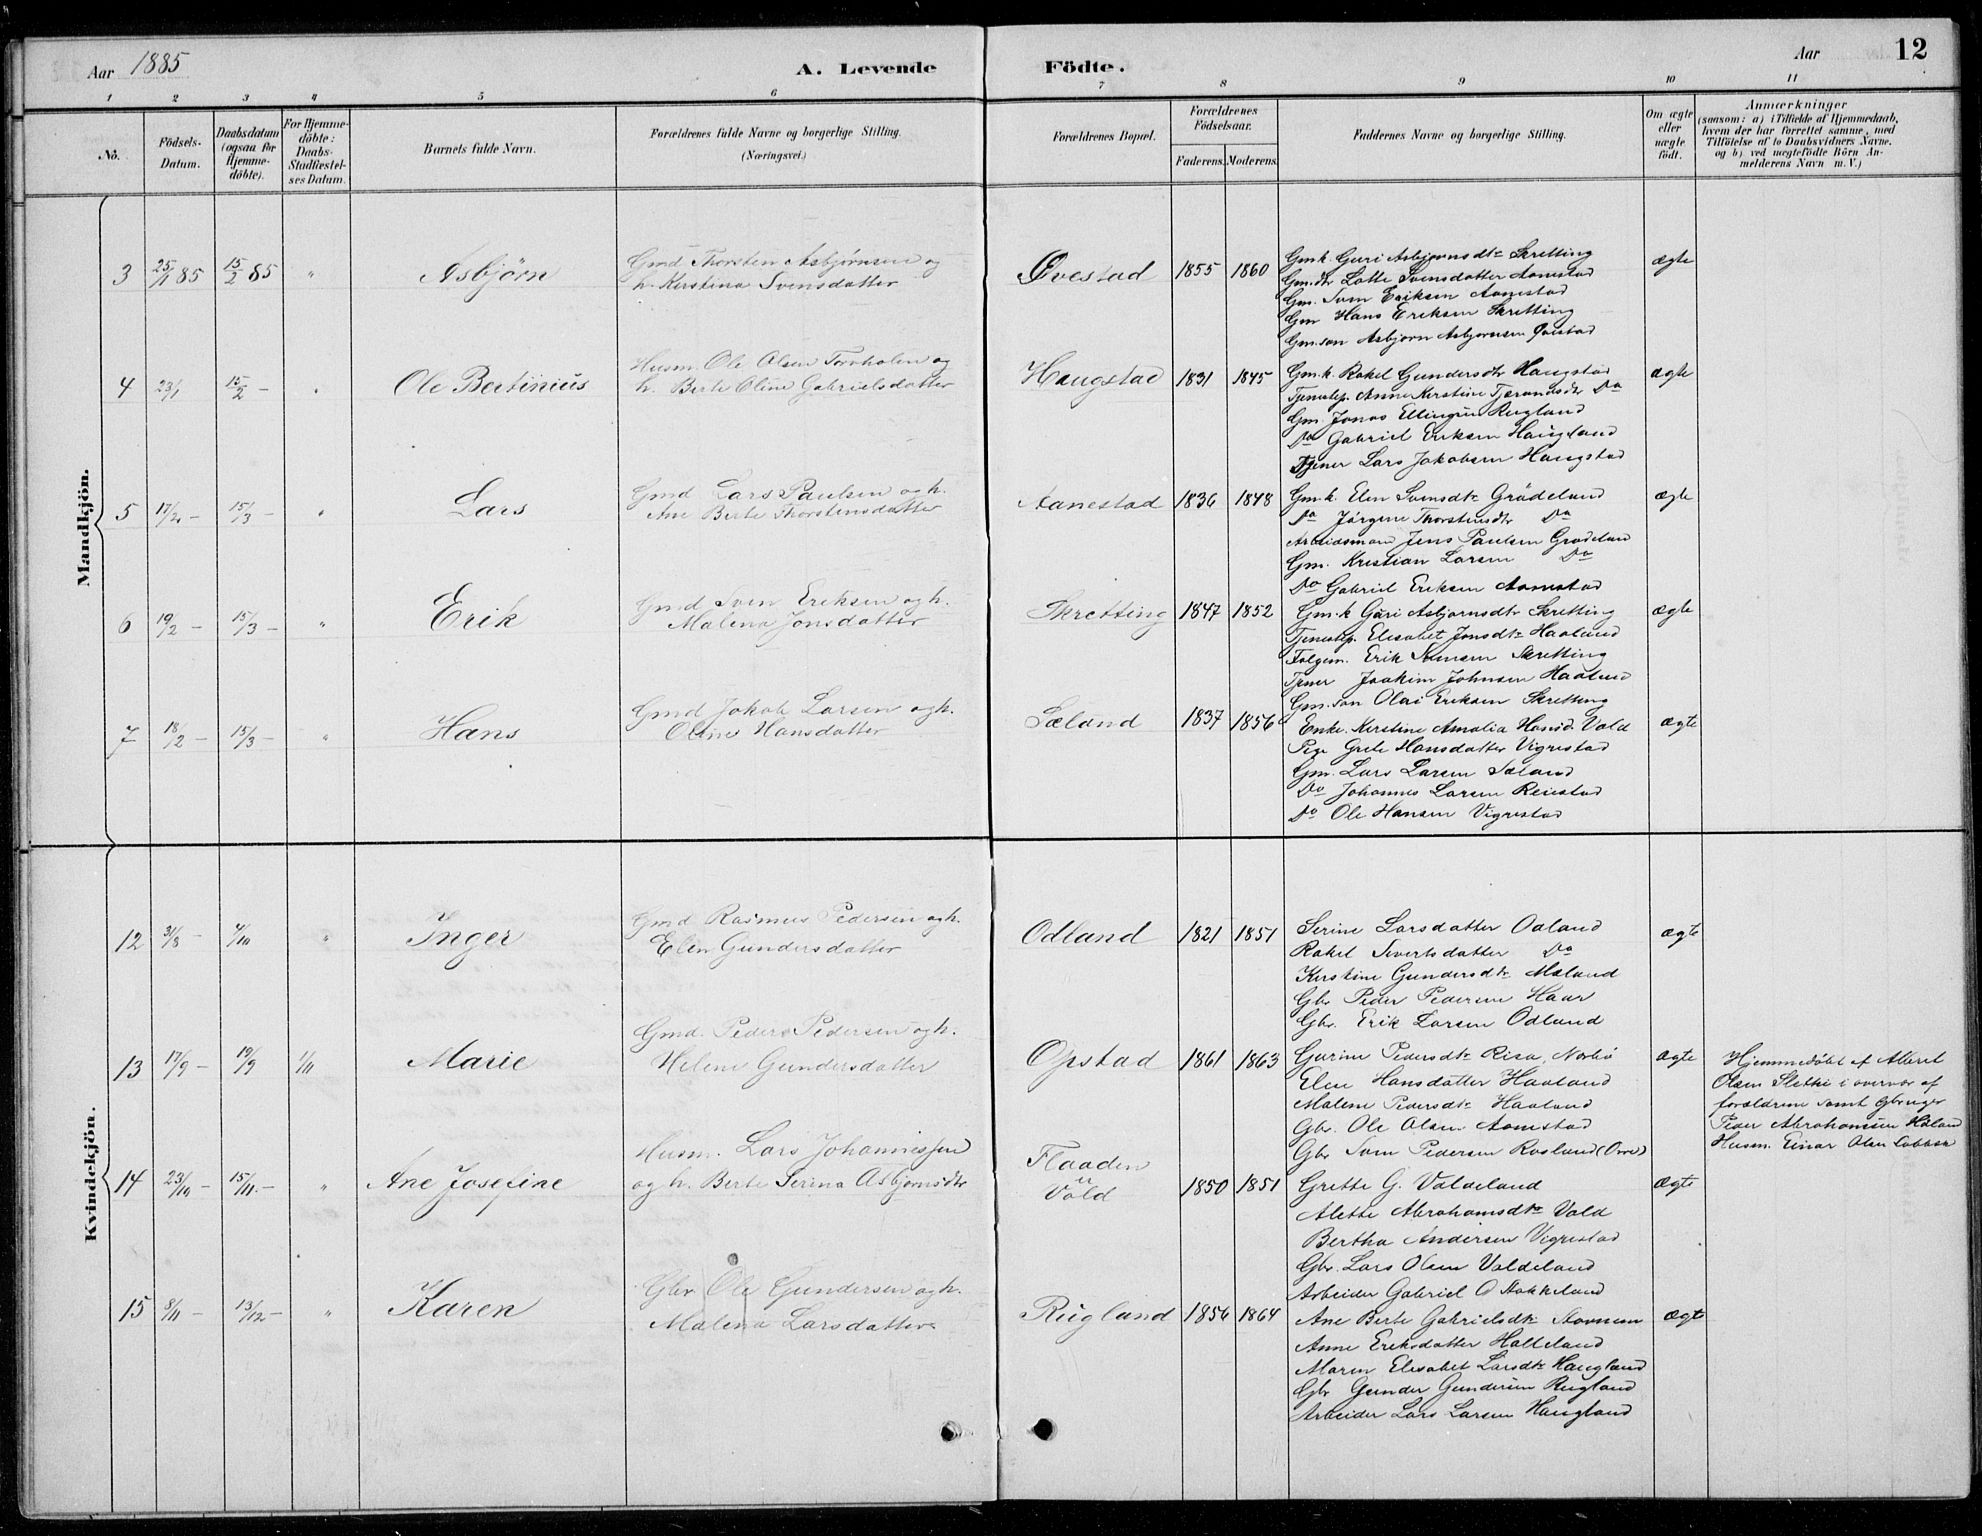 Aar 1885
A. Levende Födte.
Aar 12
1 2 3 4 5 6 7 8 9 10 11
No.
Födsels-Datum.
Daabsdatum (ogsaa for Hjemme-döbte).
For Hjemme-döbte: Daabs-Stadfæstel-ses Datum.
Barnets fulde Navn.
Forældrenes fulde Navne og borgerlige Stilling.
(Næringsvei.)
Forældrenes Bopæl.
Forældrenes Födselsaar.
Faderens. Moderens.
Faddernes Navne og borgerlige Stilling.
Om ægte eller uægte födt.
Anmærkninger
(saasom: a) i Tilfælde af Hjemmedaab,
hvem der har forrettet samme, med
Tilföielse af to Daabsvidners Navne.
og b) ved uægtefödte Börn An-
melderens Navn m. V.)
Mandkjön.
3 25/1 85 15/2 85 " Asbjörn
Gmd Thorsten Asbjörnsen og
h. Kerstina Svensdatter
Øvestad 1855 1860
Gmk. Guri Asbjornsdtr Skretting
Gm.dtr Lotte Svensdatter Aanestad
Gm. Sven Eriksen Aanestad
Gm Hans Eriksen Skretting
Gm.søn Asbjørn Asbjørnsen Øvestad
ægte
4 23/1 15/2 - " Ole Bertinius
Husm. Ole Olsen Torvholen og
h. Berte Oline Gabrielsdatter
Haugstad 1831 1845
Gm.k. Rakel Gundersdtr Haugstad
Tjenestep. Anne Kerstine Tjerandsdtr Do
Gm. Jonas Ellingsen Rugland
Do Gabriel Eriksen Haugland
Tjener Lars Jakobsen Haugstad
ægte
5 17/2 - 15/3 - " Lars
Gmd Lars Paulsen og h.
Ane Berte Thorstensdatter
Aanestad 1836 1848
Gm.k. Elen Svensdtr Grödeland
Do Jörgine Thorstensdtr Do
Arbeidsmand Jens Paulsen Grødeland
Gm. Kristian Larsen Do
Do Gabriel Eriksen Aanestad
ægte
6 19/2 - 15/3 - " Erik
Gmd Sven Eriksen og h.
Malena Jonsdatter
Skretting 1847 1852
Gm.k Guri Asbjornsdtr Skretting
Tjenestep. Elisabet Jonsdtr Haaland
Folgem. Erik Svensen Skretting
Tjener Joakim Johnsen Haaland
Gm.søn Olai Eriksen Skretting
ægte
7 18/2 - 15/3 - " Hans
Gmd Jakob Larsen og h.
Oline Hansdatter
Sæland 1837 1856
Enke. Kerstine Amalia Hansd. Vold
Pige Grete Hansdatter Vigrestad
Gm. Lars Larsen Sæland
Do Johannes Larsen Reiestad
Do Ole Hansen Vigrestad
ægte
Kvindekjön.
12 31/8 - 4/10 " Inger
Gmd Rasmus Pedersen og h.
Elen Gundersdatter
Odland 1821 1851
Serine Larsdatter Odland
Rakel Sivertsdatter Do
Kerstine Gundersdtr Mæland
Gbr Peder Pedersen Haar
Gbr. Erik Larsen Odland
ægte
13 17/9 - 19/9 1/11 Marie
Gmd. Peder Pedersen og h.
Helene Gundersdatter
Opstad 1861 1863
Gurine Pedersdtr Risa, Nærbø
Elen Hansdatter Haaland
Malene Pedersdtr Haaland
Gbr. Ole Olsen Aanestad
Gbr Sven Pedersen Rosland (Orre)
ægte
Hjemmedöbt af Albret
Olsen Slettei i overvær af
forældrene samt Gbruger
Peder Abrahamsen Håland
Husm. Einar Olsen
14 23/10 - 15/11 - " Ane Josefine
Husm. Lars Johannessen
og h. Berte Serina Asbjørnsdtr
Flaaden
u
Vold
1850 1851
Grette G. Valdeland
Alette Abrahamsdtr Vold
Bertha Andersen Vigrestad
Gbr. Lars Olsen Valdeland
Arbeider Gabriel O Stokkeland
ægte
15 8/11 - 13/12 - " Karen
Gbr Ole Gundersen og h.
Malena Larsdatter
Rugland 1856 1864
Ane Berte Gabrielsdtr Stavnem
Anne Eriksdatter Halleland
Maren Elisabet Larsdtr Haugland
Gbr Gunder Gundersen Rugland
Arbeider Lars Larsen Haugland
ægte